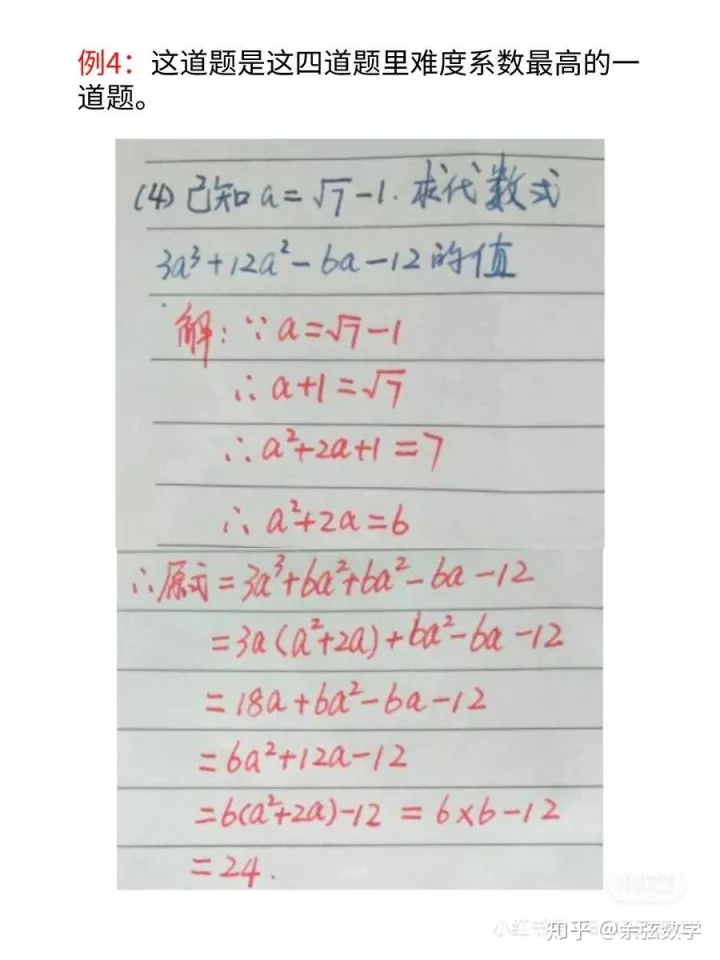 例4：这道题是这四道题里难度系数最高的一
道题。
(4) 已知 a = √7 - 1. 求代数式
3a³ + 12a² - 6a - 12 的值
解: ∵ a = √7 - 1
∴ a + 1 = √7
∴ a² + 2a + 1 = 7
∴ a² + 2a = 6
∴ 原式 = 3a³ + 6a² + 6a² - 6a - 12
= 3a (a² + 2a) + 6a² - 6a - 12
= 18a + 6a² - 6a - 12
= 6a² + 12a - 12
= 6(a² + 2a) - 12 = 6 × 6 - 12
= 24.
小红书
知乎 @余弦数学